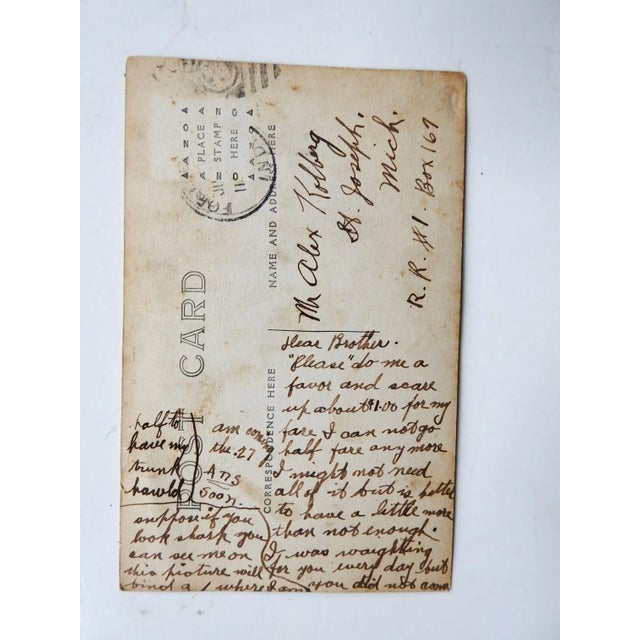 POST CARD
AZOA
PLACE
STAMP
HERE
NAME AND ADDRESS HERE
CORRESPONDENCE HERE
IND.
11
Mr. Alex Kolberg
St. Joseph.
Mich.
R.R. #1 Box 167
Dear Brother.
"Please" do me a
favor and scare
up about $1.00 for my
fare I can not go
half fare any more
I might not need
all of it but is better
to have a little more
than not enough.
I was waighting
for you every day but
you did not come
half to
have my
trunk
hawld
am coming
the 27
Ans
Soon.
suppose if you
look shark you
can see me on
this picture will
bind a / where I am